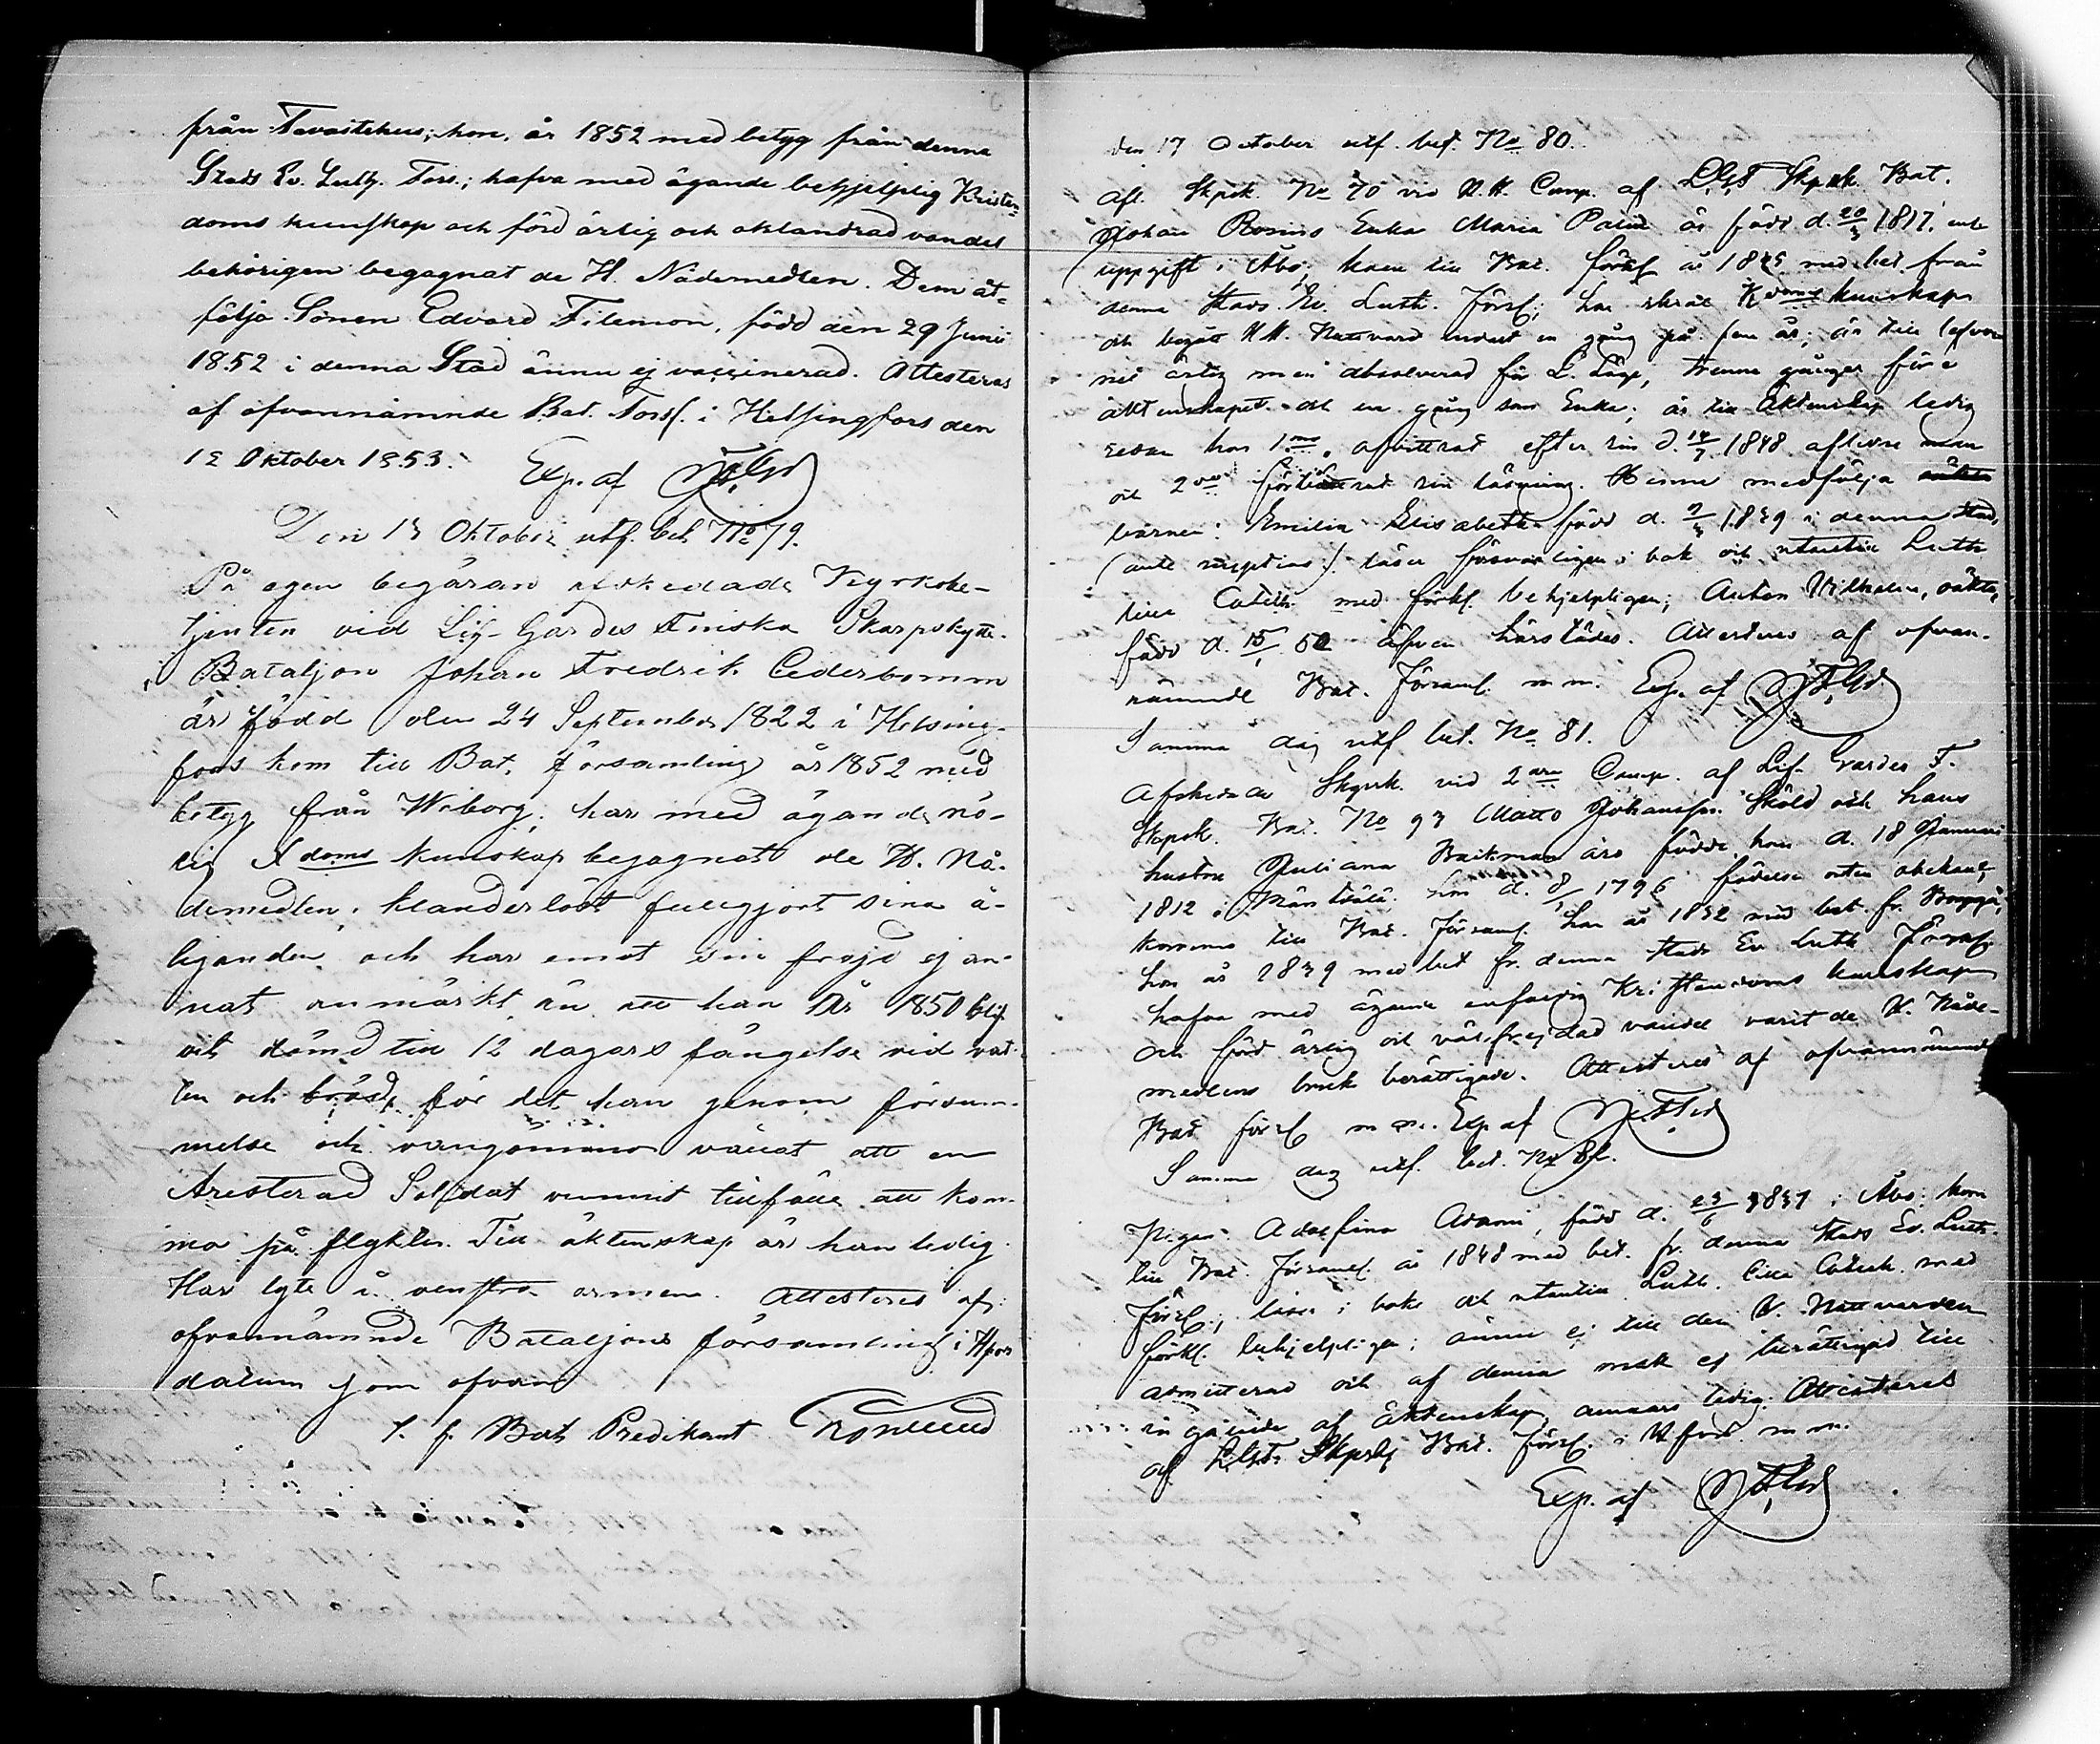 från Tavastehus; hon, år 1852 med betyg från denna
Stads Ev. Luth. Förs.; hafva med ägande behjelplig Kristen-
doms kunskap och förd ärlig och oklandrad vandel
behörigen begagnat de H. Nådemedlen. Dem åt-
följa Sonen Edvard Filemon, född den 29 Junii
1852 i denna Stad ännu ej vaccinerad. Attesteras
af ofvannämnde Bat. Förs. i Helsingfors den
12 Oktober 1853. Exp. af
Den 13 Oktober utf. bet. No 79.
På egen begäran afskedade Kyrkobe-
tjenten vid Lif-Gardes Finska Skarpskytte-
Bataljon Johan Fredrik Cederbomm
är född den 24 September 1822 i Helsing-
fors kom till Bat. församling år 1852 med
betyg från Wiborg; har med ägande nö-
dig Xdoms kunskap begagnat de H. Nå-
demedlen, klanderlöst fullgjort sina å-
ligganden, och har emot sin frejd ej an-
nat anmärkt, än att han År 1850 blif-
vit dömd till 12 dagars fängelse vid vat-
ten och bröd, för det han genom försum-
melse och vangömmo vållat att en
Aresterad Soldat vunnit tillfälle att kom-
ma på flykten. Till äktenskap är han ledig.
Har lyte å venstra armen. Attesteres af
ofvannämnde Bataljons församling i Hfors
datum som ofvan
T. f. Bat. Predikant
den 17 October utf. bet. No 80.
Afl. Skpsk. No 70 vid Comp. af LGF Skpsk. Bat.
Johan Rosins Enka Maria är född d. 20/3 1817, enl.
uppgift i Åbo; kom till Bat. förs. år 1845 med bet. från
denna Stads Ev. Luth. Förs.; har Xdoms kunskap
och begått H. H. Nattvard endast en gång på fem år; är till lefver-
net ärlig men absolverad för L. Läge, trenne gånger före
äktenskapet och en gång som Enka; är till Äktenskap ledig
sedan hon 1mo afvittrat efter sin d. 14/7 1848 aflidne man
och 2do sin läsning. Henne medfölja
barnen: Emilia Elisabeth född d. 9/3 1839 i denna Stad,
(ante nuptias) läser försvarligen i bok och utantill Luth.
lilla Catech. med förkl. behjelpligen; Anton Wilhelm, oäkta,
född d. 15/1 50 äfven härstädes. Attesteras af ofvan-
nämnde Bat. Församl. m.m. Exp. af
Samma dag utf. bet. No 81.
Afskedade Skpsk. vid 2dra Comp. af Lif-Gardes F.
Skpsk. Bat. No 93 Matts Johansson Sköld och hans
hustru Juliana Backman äro födde, han d. 18 Januari
1812 i Mäntsälä, hon d. 8/ 1796 födelse orten obekant,
kommo till Bat. Församl. han år 1832 med bet. fr. Borgå;
hon år 1839 med bet. fr. denna Stads Ev. Luth. Förs.
hafva med ägande enfaldig Kristendoms kunskap
och förd ärlig och välfrejdad vandel varit de H. Nåde-
medlens bruk berättigade. Attesteras af ofvannämnde
Bat. förs. m.m. Exp. af
Samma dag utf. bet. No 82.
Pigan Adolfina Adami, född d. 23/6 1837 i Åbo; kom
till Bat. Församl. år 1848 med bet. fr. denna Stads Ev. Luth.
Förs.; läser i bok och utantill Luth. lilla Catech. med
förkl. behjelpligen; ännu ej till den H. Nattvarden
admitterad och af denna orsak ej berättigad till
ingående af Äktenskap, annars ledig. Attesteras
af LGF. Skpsk. Bat. Förs. i Hfors m.m.
Exp. af